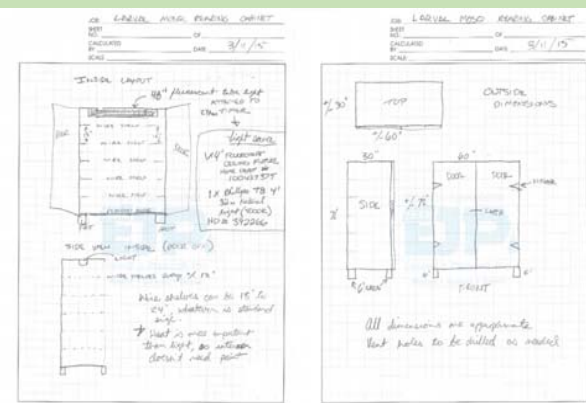 JOB LARVAL MOSQ REARING CABINET
SHEET NO. OF
CALCULATED BY DATE 3/11/15
SCALE
INSIDE LAYOUT
48" fluorescent tube light
ATTACHED TO
TIMER
DOOR
DOOR
WIRE SHELF
WIRE SHELF
WIRE SHELF
WIRE SHELF
WIRE SHELF
light
1x4' FLUORESCENT
CEILING FIXTURE
1 x Phillips T8 4'
32w
light
HD# 392266
SIDE VIEW INSIDE (DOOR OFF)
LIGHT
WIRE SHELVES every 12"
Wire shelves can be 18" to
24" whatever is standard
size.
* Heat is more important
than light, so interior
doesn't need paint
JOB LARVAL MOSQ REARING CABINET
SHEET NO. OF
CALCULATED BY DATE 3/11/15
SCALE
OUTSIDE
DIMENSIONS
+/- 30"
TOP
+/- 60"
30"
60"
DOOR
DOOR
SIDE
+/- 72"
6"
6"
FRONT
All dimensions are approximate
Vent holes to be drilled as needed
EJP
EJP